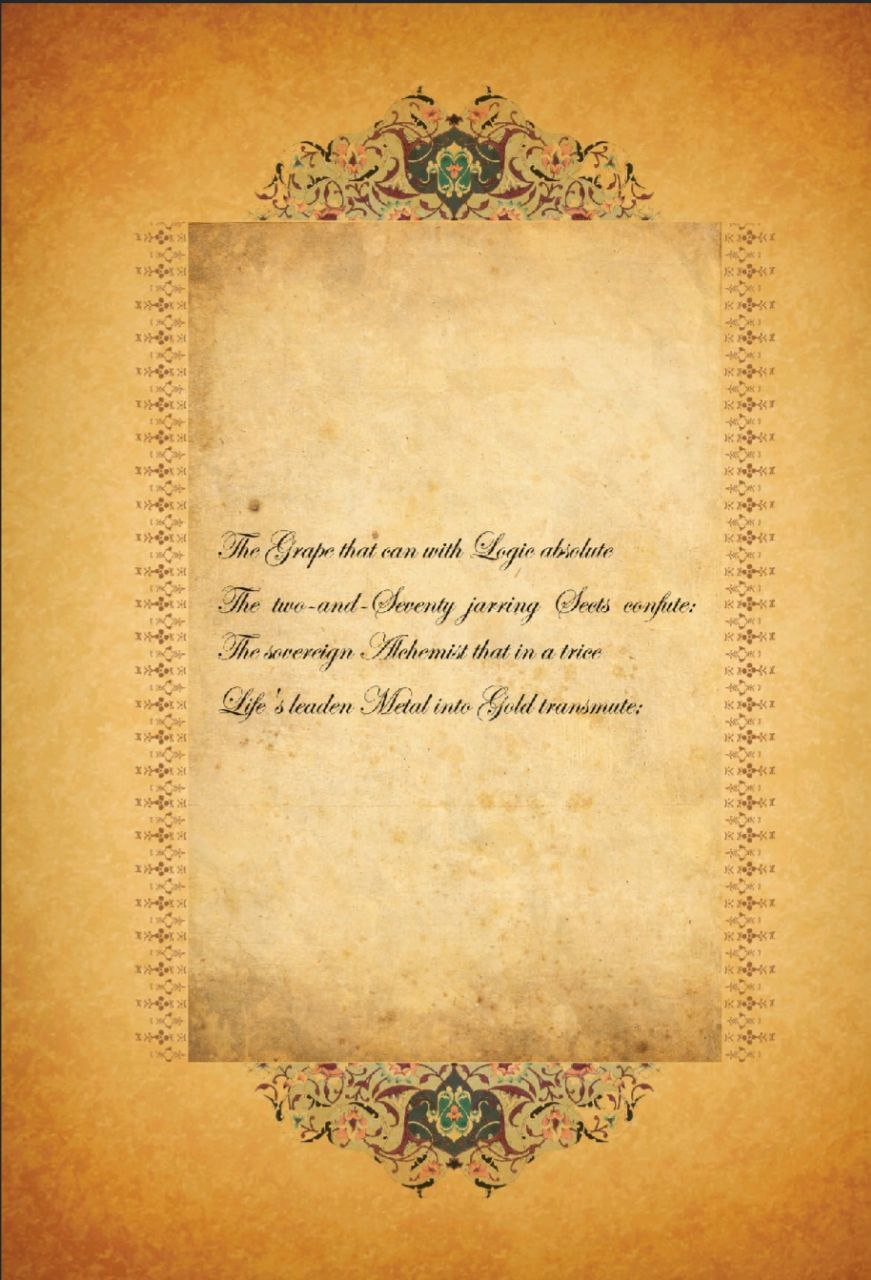 The Grape that can with Logic absolute
The two-and-Seventy jarring Sects confute:
The sovereign Alchemist that in a trice
Life 's leaden Metal into Gold transmute: